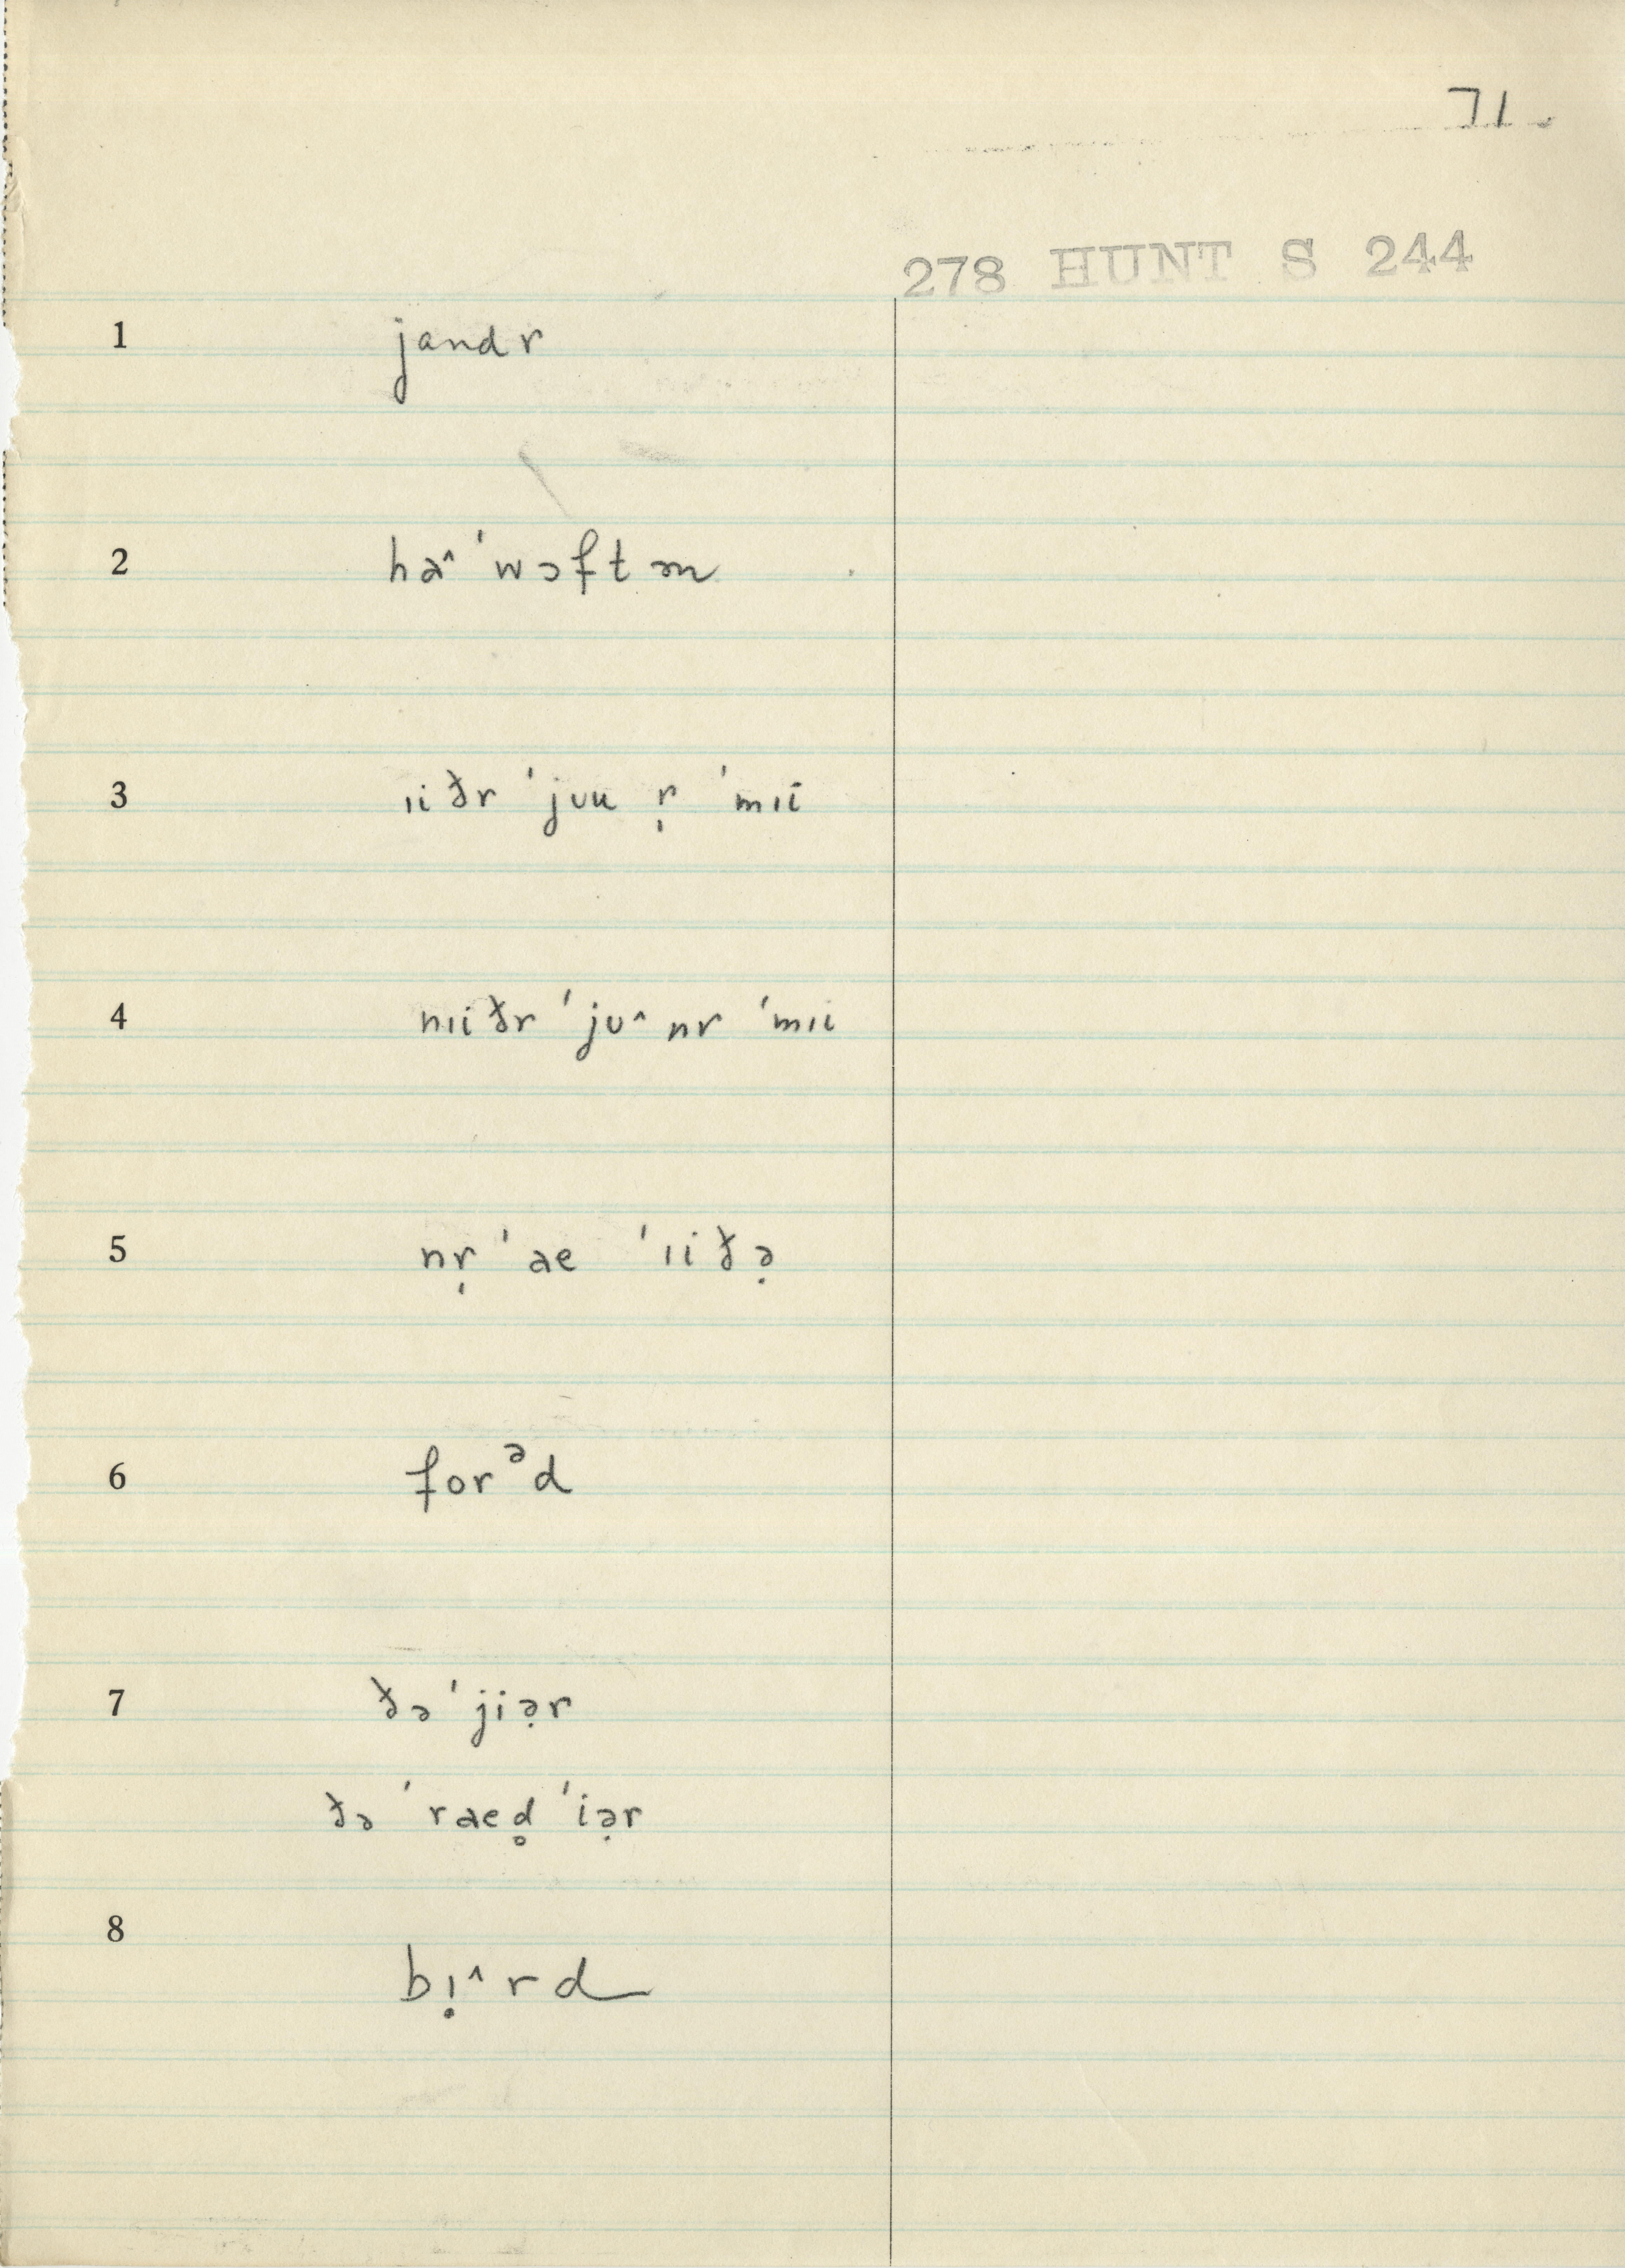 71.
278 HUNT S 244
1 jandr
2 haˆ ˈwɔftən
3 ɪiðr ˈjʊu r̩ ˈmɪi
4 nɪiðr ˈjʊˆ nr ˈmɪi
5 nr̩ ˈae ˈɪiðə̣
6 forᵊd
7 ðə ˈjiə̣r
ðə ˈraed̥ ˈiə̣r
8 bɪ̣ˆrd